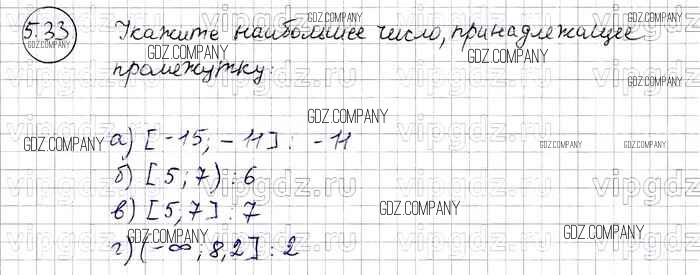 5.33 Укажите наибольшее число, принадлежащее
промежутку:
а) [-15; -11] : -11
б) [5; 7) : 6
в) [5; 7] : 7
г) (-∞; 8,2] : 2
GDZ.COMPANY
GDZ.COMPANY
GDZ.COMPANY
GDZ.COMPANY
GDZ.COMPANY
GDZ.COMPANY
GDZ.COMPANY
GDZ.COMPANY
GDZ.COMPANY
GDZ.COMPANY
GDZ.COMPANY
GDZ.COMPANY
GDZ.COMPANY
vipgdz.ru
vipgdz.ru
vipgdz.ru
vipgdz.ru